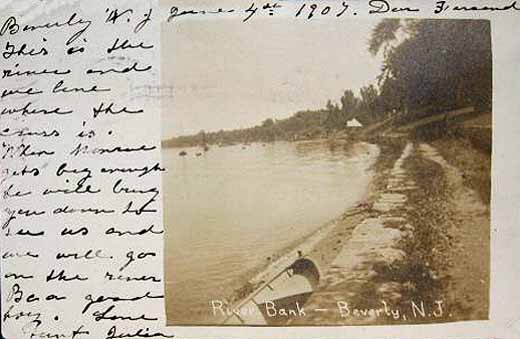 Beverly N. J June 4th 1907. Dear
This is the
river and
we live
where the
cross is.
When Monroe
gets big enough
he will bring
you down to
see us and
we will go
on the river
Be a good
boy. Love
Aunt Julia
River Bank — Beverly, N.J.